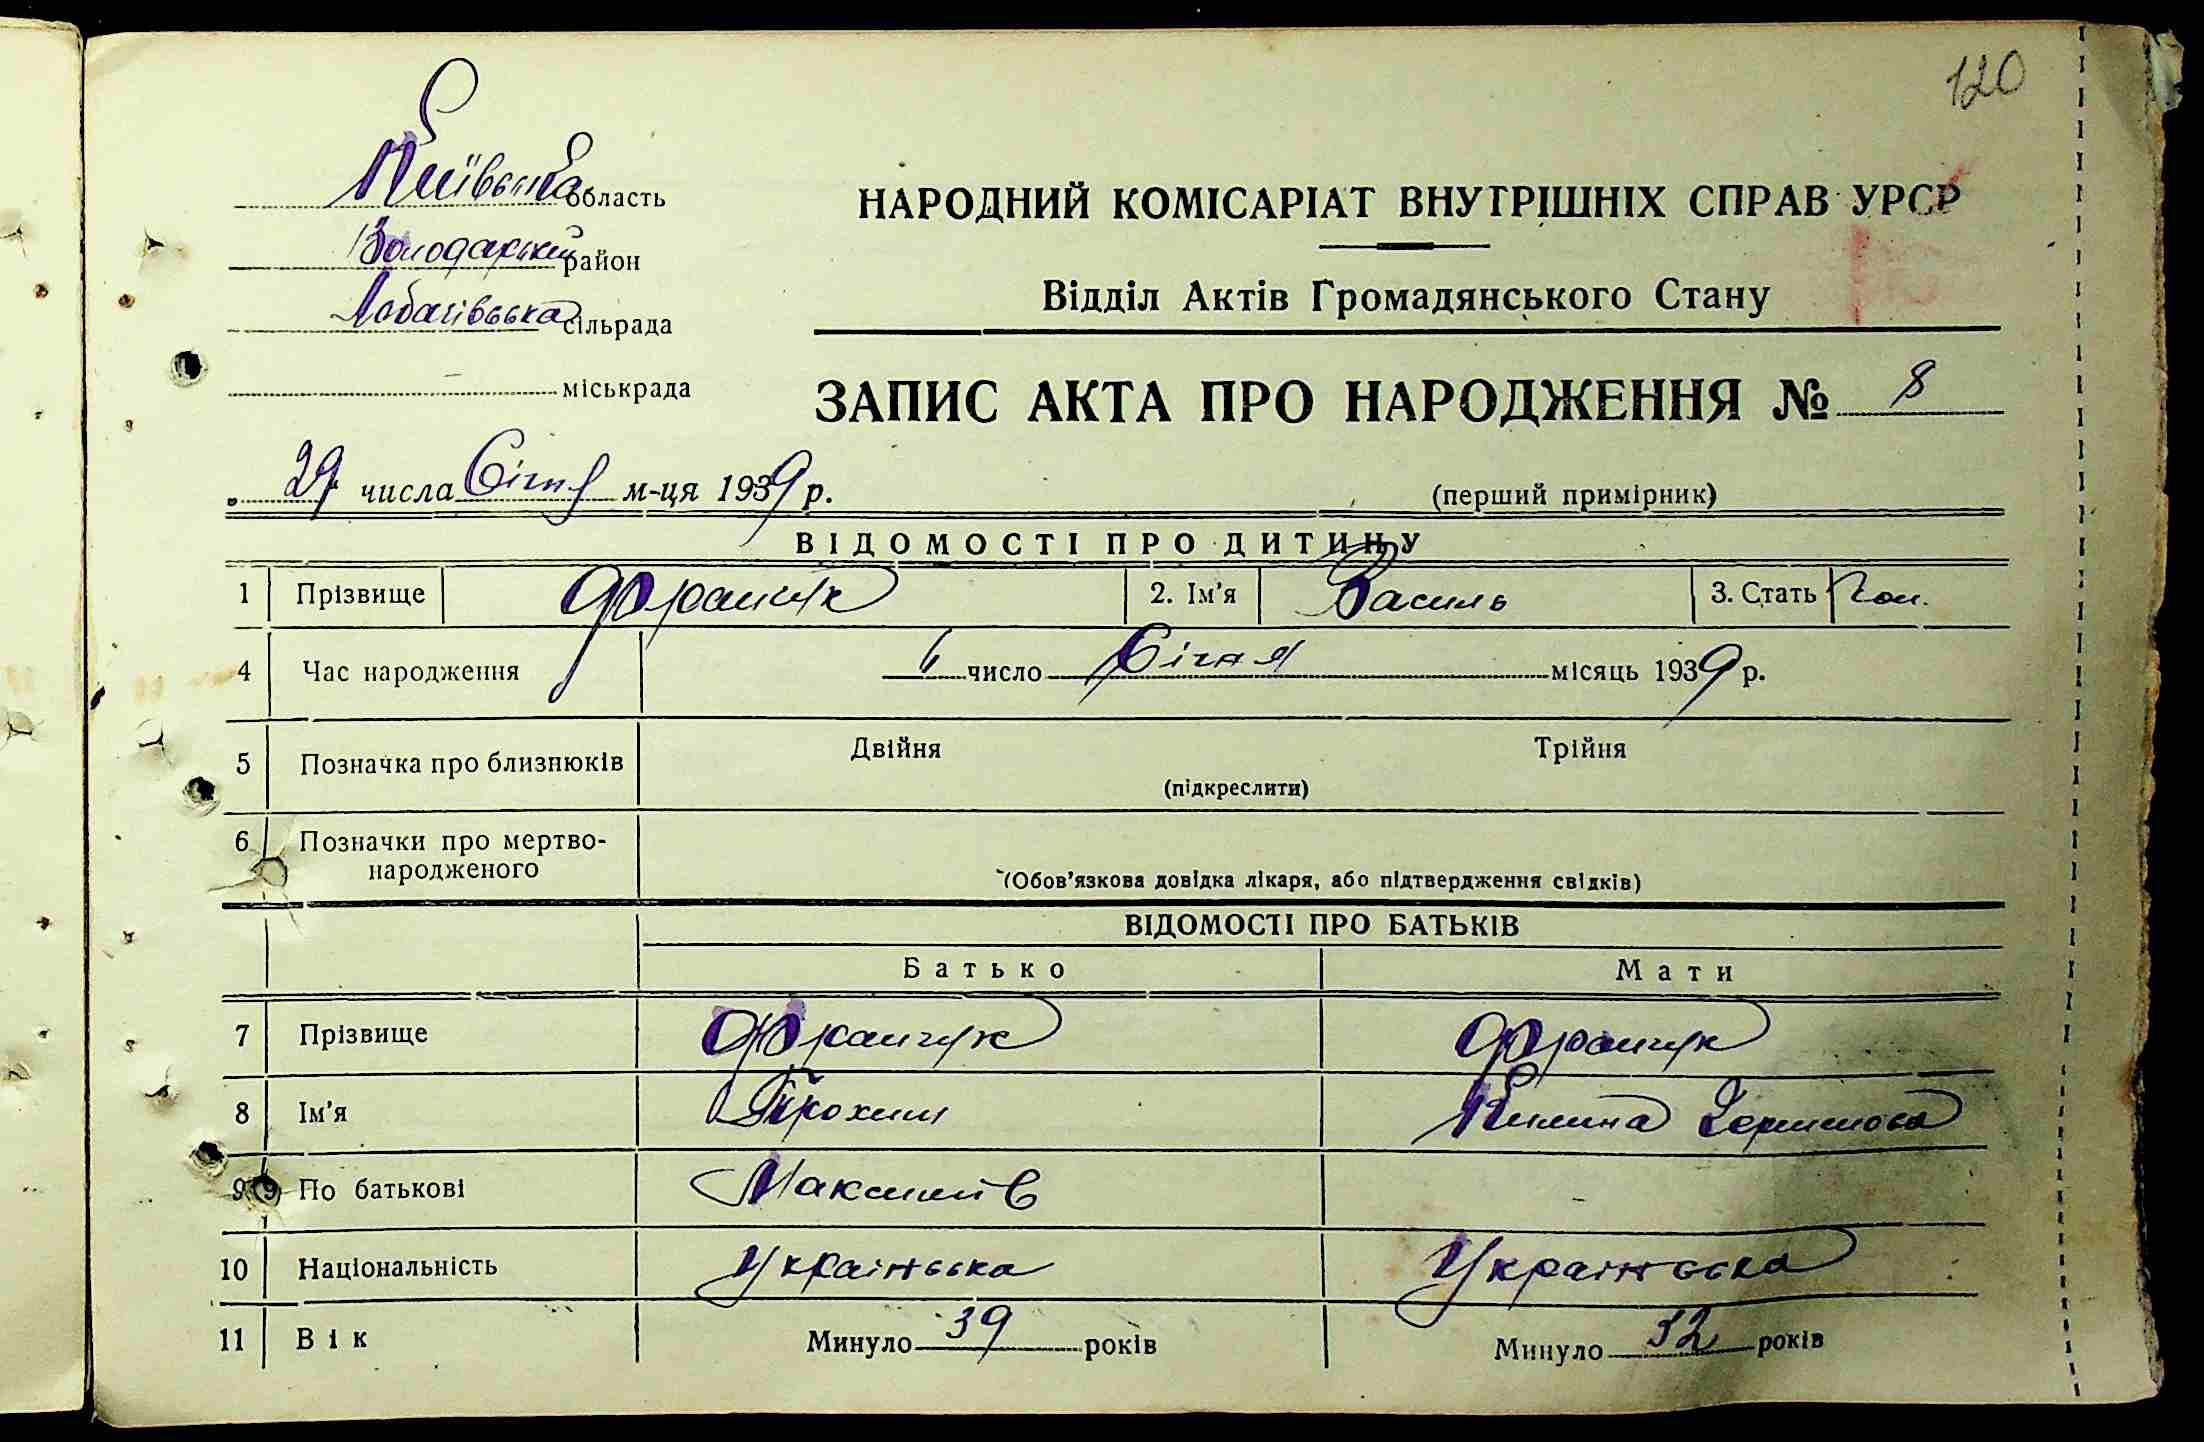 120
Київська область
Володарський район
Лобачівська сільрада
міськрада
НАРОДНИЙ КОМІСАРІАТ ВНУТРІШНІХ СПРАВ УРСР
Відділ Актів Громадянського Стану
ЗАПИС АКТА ПРО НАРОДЖЕННЯ № 8
29 числа Січня м-ця 1939 р.
(перший примірник)
ВІДОМОСТІ ПРО ДИТИНУ
1 Прізвище Франчук 2. Ім'я Василь 3. Стать Чол.
4 Час народження 6 число Січня місяць 1939 р.
5 Позначка про близнюків Двійня Трійня
(підкреслити)
6 Позначки про мертво-
народженого
(Обов'язкова довідка лікаря, або підтвердження свідків)
ВІДОМОСТІ ПРО БАТЬКІВ
Батько Мати
7 Прізвище Франчук Франчук
8 Ім'я Трохим Килина
9 9 По батькові Максимів
10 Національність Українська Українська
11 Вік Минуло 39 років Минуло 32 років